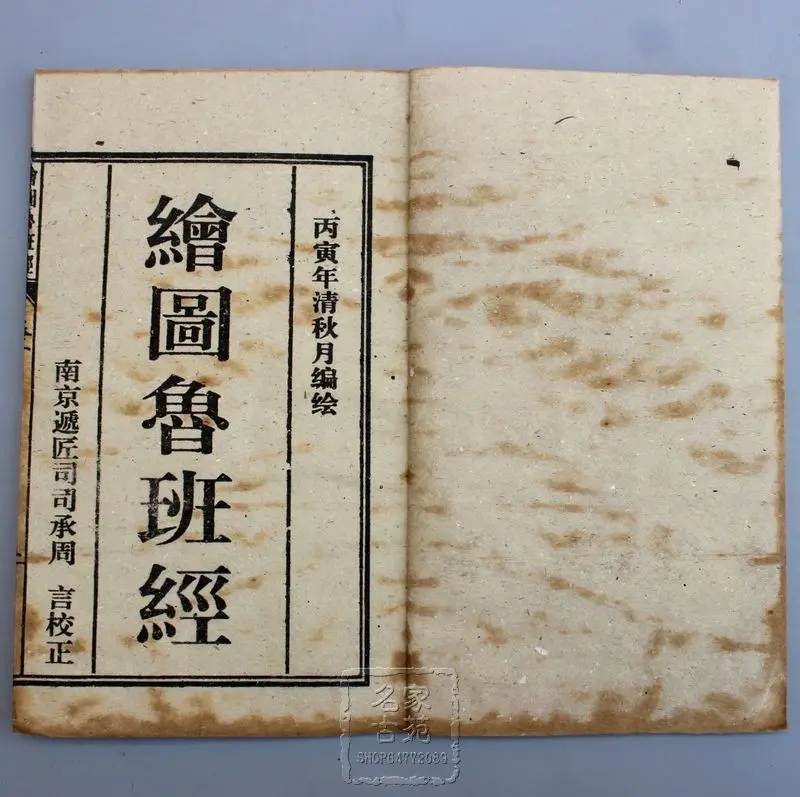 丙寅年清秋月编绘
繪圖魯班經
南京遞匠司司承周 言校正
繪圖魯班經
名家
古苑
SHOP64772089